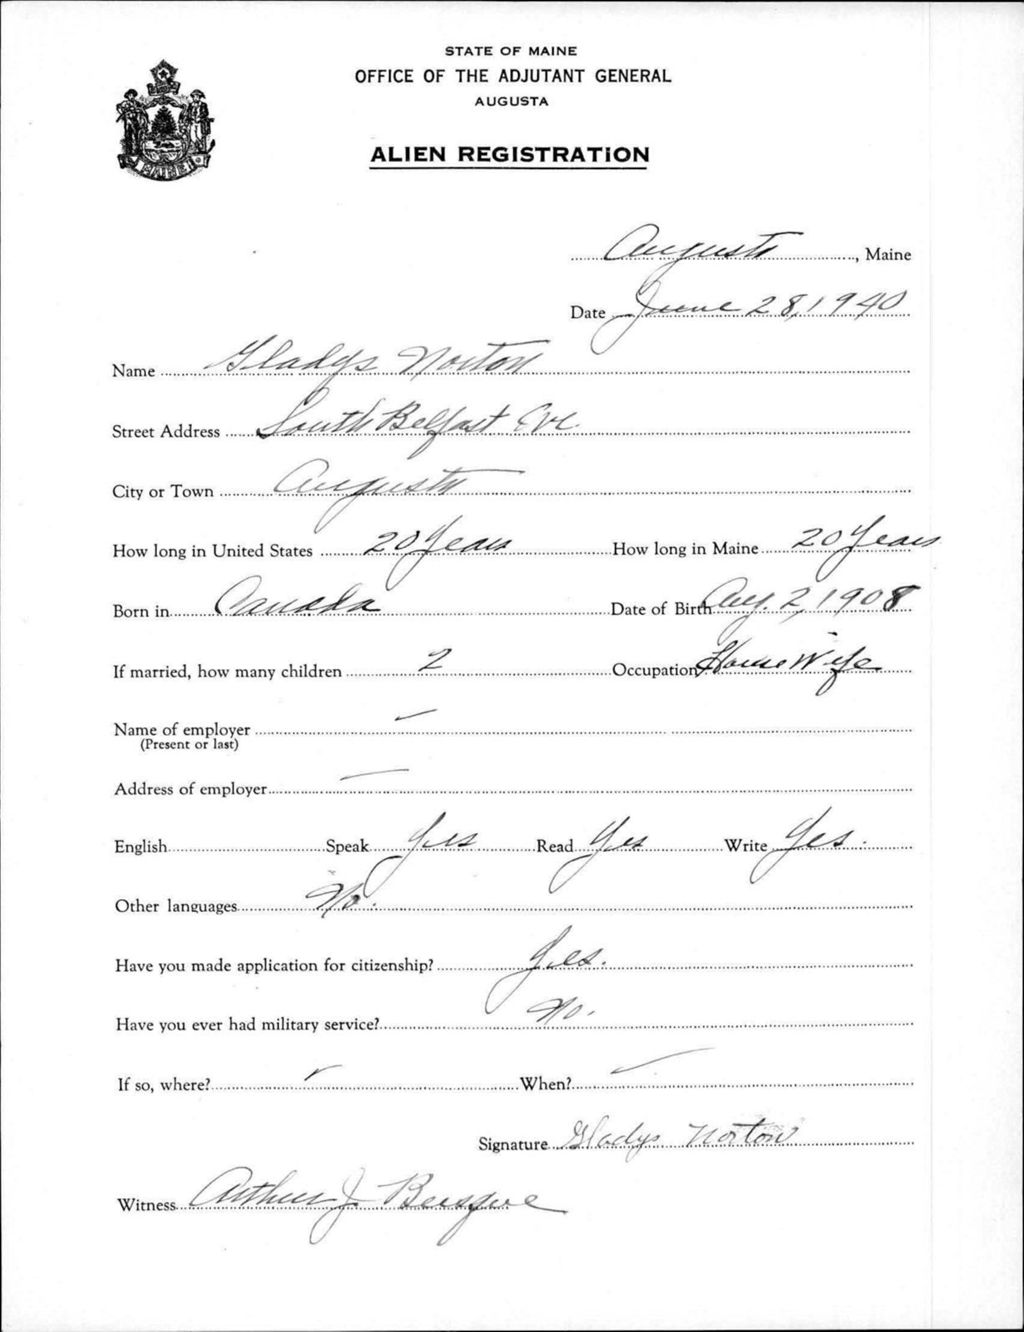 STATE OF MAINE
OFFICE OF THE ADJUTANT GENERAL
AUGUSTA
ALIEN REGISTRATION
MAINE
Augusta, Maine
Date June 28, 1940
Name Gladys Norton
Street Address South Belfast Eve
City or Town Augusta
How long in United States 20 Years How long in Maine 20 Years
Born in Canada Date of Birth Aug. 2, 1908
If married, how many children 2 Occupation House Wife
Name of employer —
(Present or last)
Address of employer —
English Speak Yes Read Yes Write Yes.
Other languages No.
Have you made application for citizenship? Yes.
Have you ever had military service? No.
If so, where? When? —
Signature Gladys Norton
Witness Arthur J